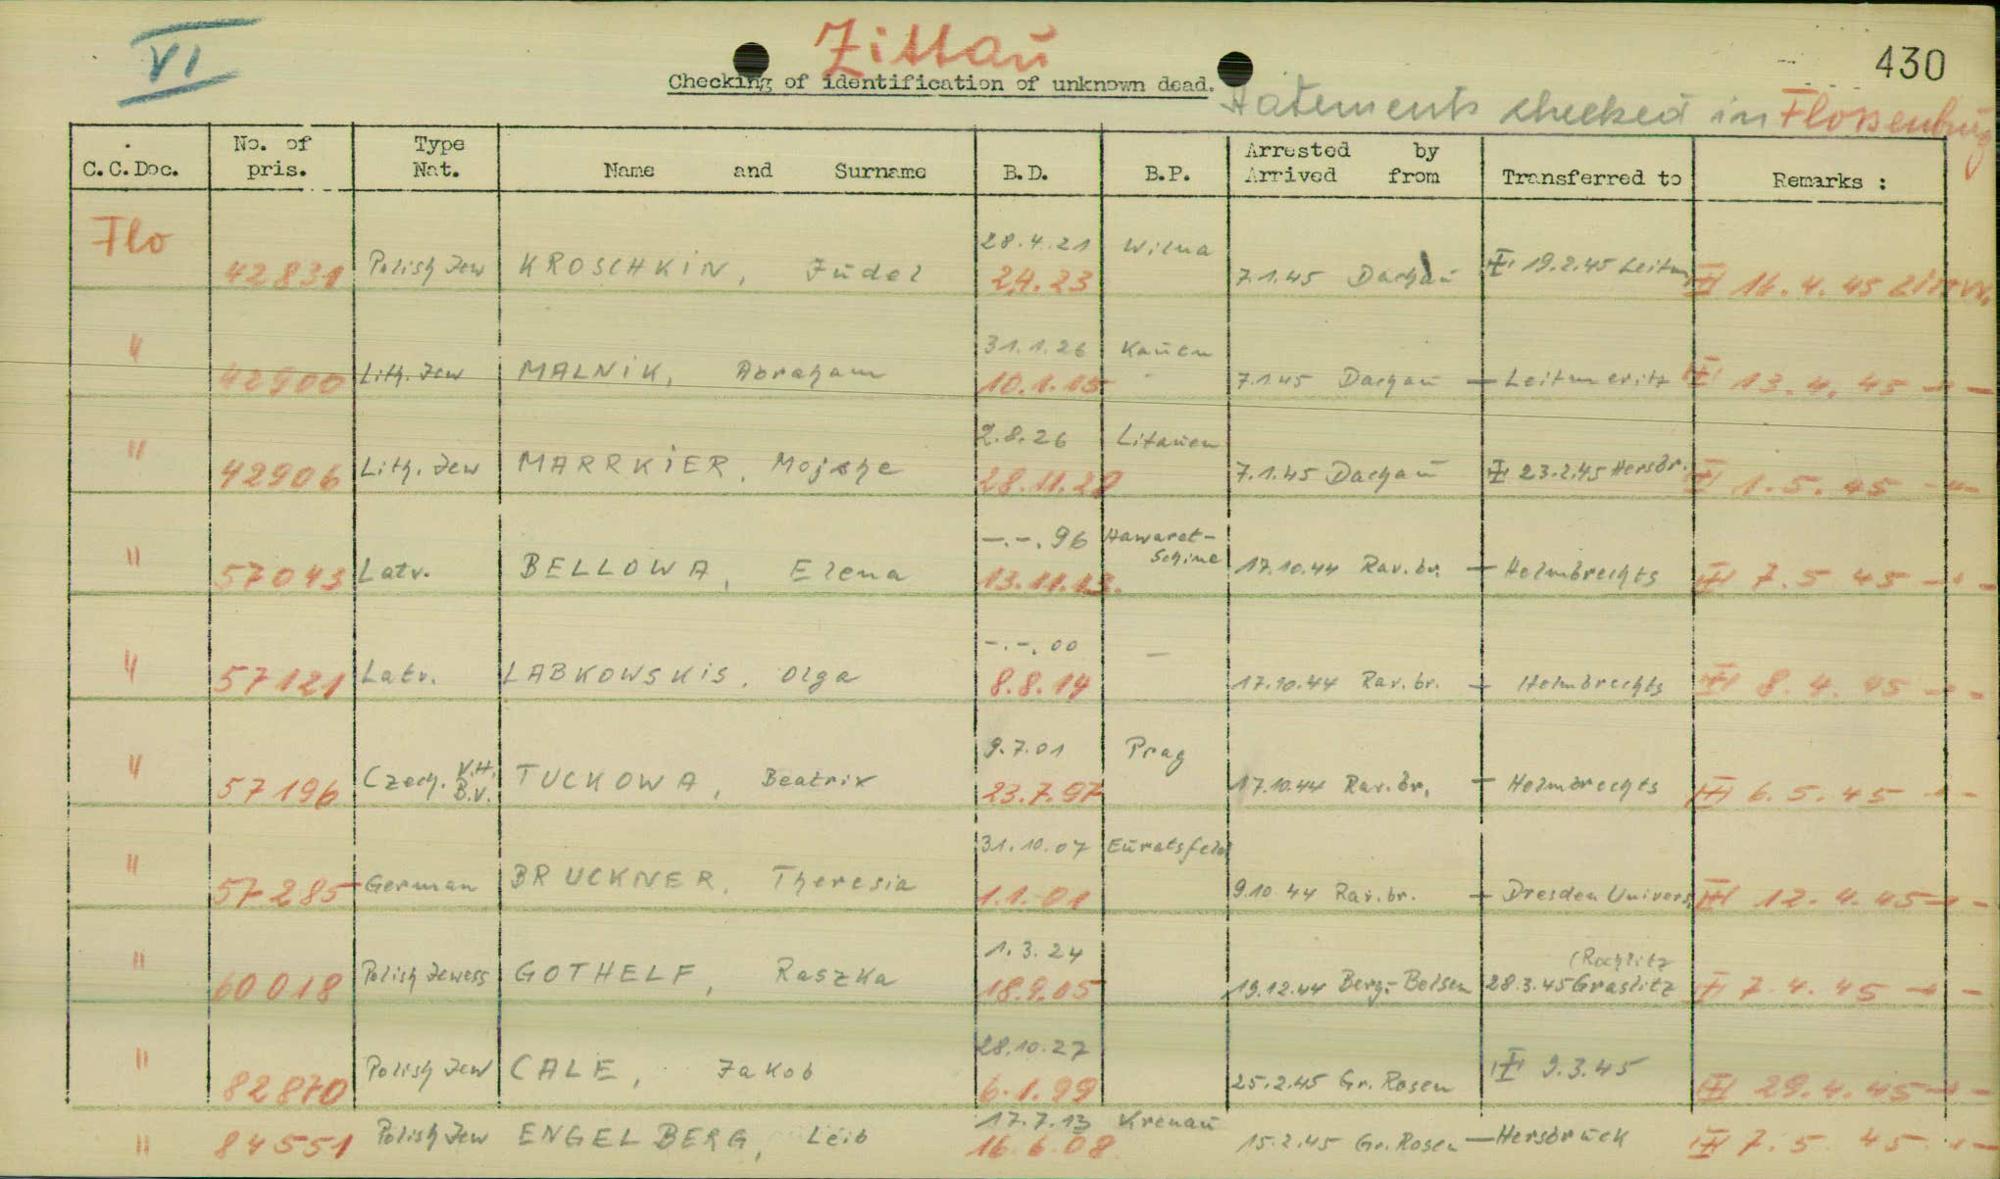 VI
Zittau
430
Checking of identification of unknown dead.
Statements checked in Flossenbürg
C.C.Doc. No. of pris. Type Nat. Name and Surname B.D. B.P. Arrested by Arrived from Transferred to Remarks :
28.4.21 Wilna
Flo 42831 Polish Jew KROSCHKIN, Judel 2.4.23 7.1.45 Dachau 19.2.45 Leitm 16.4.45
31.1.26 Kauen
" 42900 Lith. Jew MALNIK, Abraham 10.1.15 7.1.45 Dachau — Leitmeritz 13.4.45 - " -
2.8.26 Litauen
" 42906 Lith. Jew MARRKIER, Mojshe 28.11.28 7.1.45 Dachau 23.2.45 Hersbr. 1.5.45 - " -
-.-.96 Hawaret-
Schine
" 57043 Latv. BELLOWA, Elena 13.11.13. 17.10.44 Rav.br. — Holmbrechts 7.5.45 - " -
-.-.00 —
" 57121 Latv. LABKOWSKIS, Olga 8.8.14 17.10.44 Rav.br. — Helmbrechts 8.4.45 - " -
9.7.01 Prag
" 57196 Czech. V.H. B.V. TUCKOWA, Beatrix 23.7.97 17.10.44 Rav.br. — Holmbrechts 6.5.45 - " -
31.10.07 Euratsfeld
" 57285 German BRUCKNER, Theresia 1.1.01 9.10.44 Rav.br. — Dresden Univers. 12.4.45 - " -
1.3.24 (Rochlitz
" 60018 Polish Jewess GOTHELF, Raszka 18.9.05 19.12.44 Berg.-Belsen 28.3.45 Graslitz 7.4.45 - " -
28.10.27
" 82870 Polish Jew CALE, Jakob 6.1.99 25.2.45 Gr. Rosen 9.3.45 29.4.45 - " -
17.7.13 Krenau
" 84551 Polish Jew ENGELBERG, Leib 16.6.08 15.2.45 Gr. Rosen — Hersbruck 7.5.45 - " -